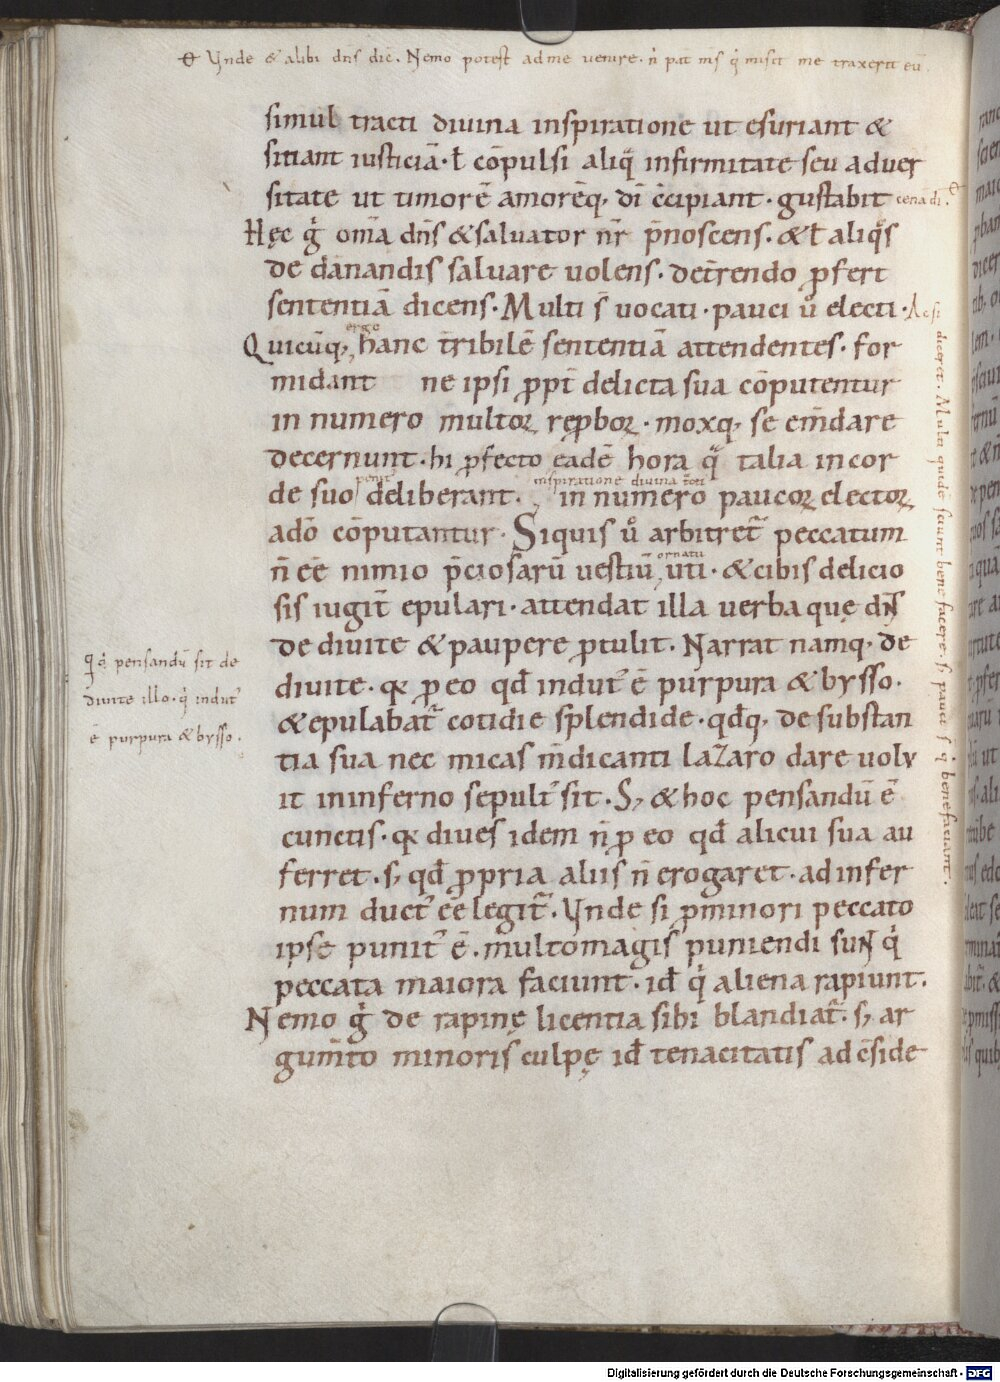 Ynde & alibi dn̄s dic̄. Nemo potest ad me uenire. n̄ pat̄ m̄s q̇ misit me traxerit eū.
simul tracti diuina inspiratione ut esuriant &
sitiant iusticiā. ł cōpulsi aliq̄ infirmitate seu aduer
sitate ut timorē amorēq; dī c̄cipiant. gustabit cena di.
Hęc ḡ om̄a dn̄s & saluator nr̄ p̄noscens. & ł aliq̊s
de dānandis saluare uolens. det̄rendo ꝓfert
sententiā dicens. Multi s̄ uocati. pauci ů electi. Ac si
diceret. Multi quidē sciunt bene facere. s; pauci s̄ q̇ benefaciant.
ergo
Quicūq; hanc t̄ribilē sententiā attendentes. for
midant ne ipsi ꝓpt̄ delicta sua cōputentur
in numero multoꝝ rep̄boꝝ. moxq; se em̄dare
decernunt. hi ꝓfecto eadē hora q̄ talia in cor
penit̄ inspiratione diuina
de suo deliberant. in numero paucoꝝ electoꝝ
a dō cōputantur. Siquis ů arbitret̄ peccatum
ornatu
n̄ eē nimio p̄ciosarū uestiū uti. & cibis delicio
sis iugit̄ epulari. attendat illa uerba quę dn̄s
de diuite & paupere ꝓtulit. Narrat namq; de
diuite. qꝛ ꝓ eo qd̄ indut᾿ ē purpura & bysso.
& epulabat̄ cotidie splendide. qd̄q; de substan
tia sua nec micas m̄dicanti lazaro dare uolu
it in inferno sepult᾿ sit. S; & hoc pensandū ē
cunctis. qꝛ diues idem n̄ ꝓ eo qd̄ alicui sua au
ferret. s; qd̄ ꝓpria aliis n̄ erogaret. ad infer
num duct᾿ eē legit̄. Ynde si ꝓ minori peccato
ipse punit᾿ ē. multomagis puniendi sunt q̇
peccata maiora faciunt. id̄ q̇ aliena rapiunt.
Nemo ḡ de rapinę licentia sibi blandiat̄. s; ar
gum̄to minoris culpę id̄ tenacitatis ad c̄side
pensandū sit de
diuite illo. q̇ indut᾿
ē purpura & bysso.
Digitalisierung gefördert durch die Deutsche Forschungsgemeinschaft - DFG